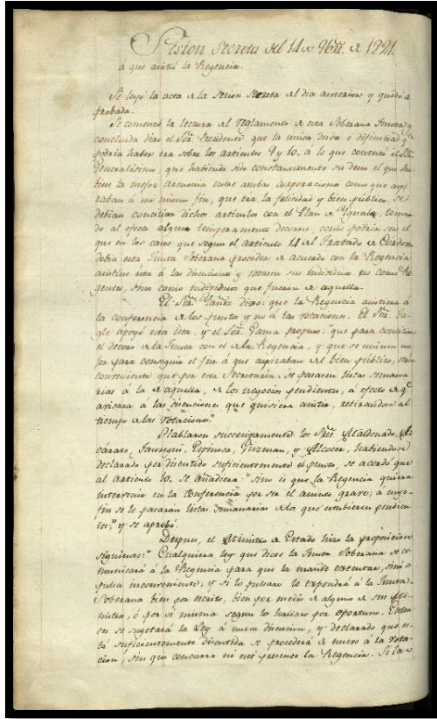 Sesion Secreta del 14 de 9bre. de 1821.
a que asistió la Regencia.
Se leyó la acta de la Sesion Secreta del dia anterior y quedó a-
probada.
Se comenzó la lectura del Reglamento de esta Soberana Junta, y
concluida dixo el Sr. Presidente que la unica duda ó dificultad qe.
podria haber era sobre los articulos 9 y 10, á lo que contextó el
Generalisimo, que habiendo sido constantemente su deseo el que
la mejor armonia entre ambas corporaciones como que aspi-
raban á un mismo fin, que era la felicidad y bien publico, se
debian conciliar dichos articulos con el Plan de Yguala, toman-
do al efecto algun temperamento decoroso, como podria ser el
que en los casos que segun el articulo 14 del Tratado de Cordova
debia esta Junta Soberana proceder de acuerdo con la Regencia
asistiese ésta á las discusiones y votasen sus individuos no como Re-
gentes, sino como individuos que fueran de aquella.
El Sr. Yañez dixo: que la Regencia asistiera á
la conferencia de los puntos y no á las votaciones. El Sr.
apoyó esta idea, y el Sr. Gama propuso: "que para conciliar
el decoro de la Junta con el de la Regencia, y que se uniesen me-
jor para conseguir el fin á que aspiraban del bien publico, sería
conveniente que por esta Secretaría se pasasen listas semana-
rias á la de aquella, de los negocios pendientes, á efecto de qe.
avisara á las discusiones que quisiera asistir, retirandose al
tiempo de las votaciones."
Hablaron succesivamente los Sres. Maldonado, Az-
cárate, Jauregui, Espinosa, Guzman, y Alcocer, habiendose
declarado por discutido suficientemente el punto, se acordó que
al articulo 10. se añadiera: "sino es que la Regencia quiera
intervenir en la conferencia por ser el asunto grave; a cuyo
fin se le pasaran listas semanarias de los que estubieren pendien-
tes;" y se aprobó.
Despues, el Ministro de Estado hizo la proposicion
siguiente: "Cualquiera ley que dicte la Junta Soberana se co-
municará á la Regencia para que la mande executar, sino
pulsa inconveniente; y si lo pulsare lo expondrá á la Junta
Soberana bien por escrito, bien por medio de alguno de sus Mi-
nistros, ó por si misma segun lo hallare por oportuno. Enton-
ces se sujetará la ley á nueva discusion, y declarado que es-
tá suficientemente discutida se procederá de nuevo á la vota-
cion, sin que concurra ni esté presente la Regencia. Si la